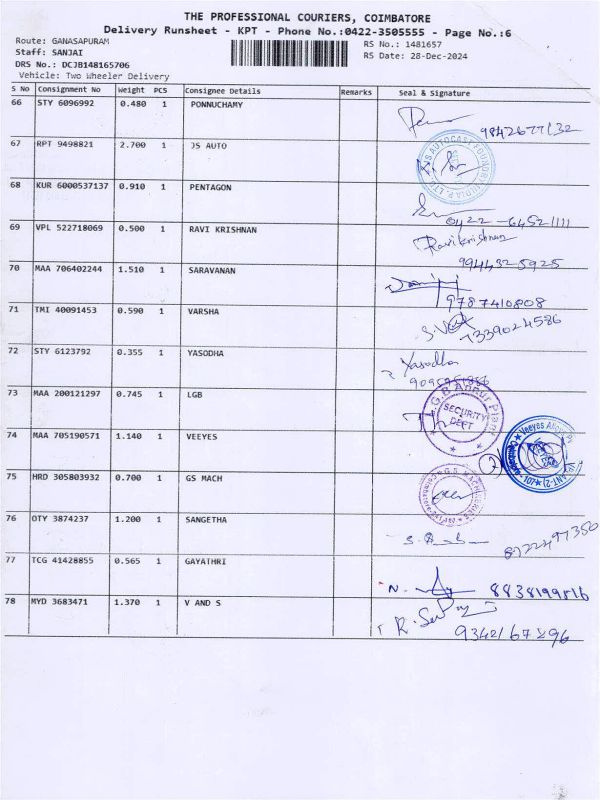 THE PROFESSIONAL COURIERS, COIMBATORE
Delivery Runsheet - KPT - Phone No.:0422-3505555 - Page No.:6
Route: GANASAPURAM
RS No.: 1481657
Staff: SANJAI
RS Date: 28-Dec-2024
DRS No.: DCJB148165706
Vehicle: Two Wheeler Delivery
S No Consignment No Weight PCS Consignee Details Remarks Seal & Signature
66 STY 6096992 0.480 1 PONNUCHAMY
67 RPT 9498821 2.700 1 JS AUTO
JS AUTOCAST FOUNDRY INDIA P. LTD.
68 KUR 6000537137 0.910 1 PENTAGON
0422-64521111
69 VPL 522718069 0.500 1 RAVI KRISHNAN
Ravikrishnan
9944325925
70 MAA 706402244 1.510 1 SARAVANAN
9787410808
71 TMI 40091453 0.590 1 VARSHA
7339024586
72 STY 6123792 0.355 1 YASODHA
Yasodha
73 MAA 200121297 0.745 1 LGB
L.G.B Annur Plant
SECURITY
DEPT
74 MAA 705190571 1.140 1 VEEYES
75 HRD 305803932 0.700 1 GS MACH
76 OTY 3874237 1.200 1 SANGETHA
77 TCG 41428855 0.565 1 GAYATHRI
N.
78 MYD 3683471 1.370 1 V AND S
R.